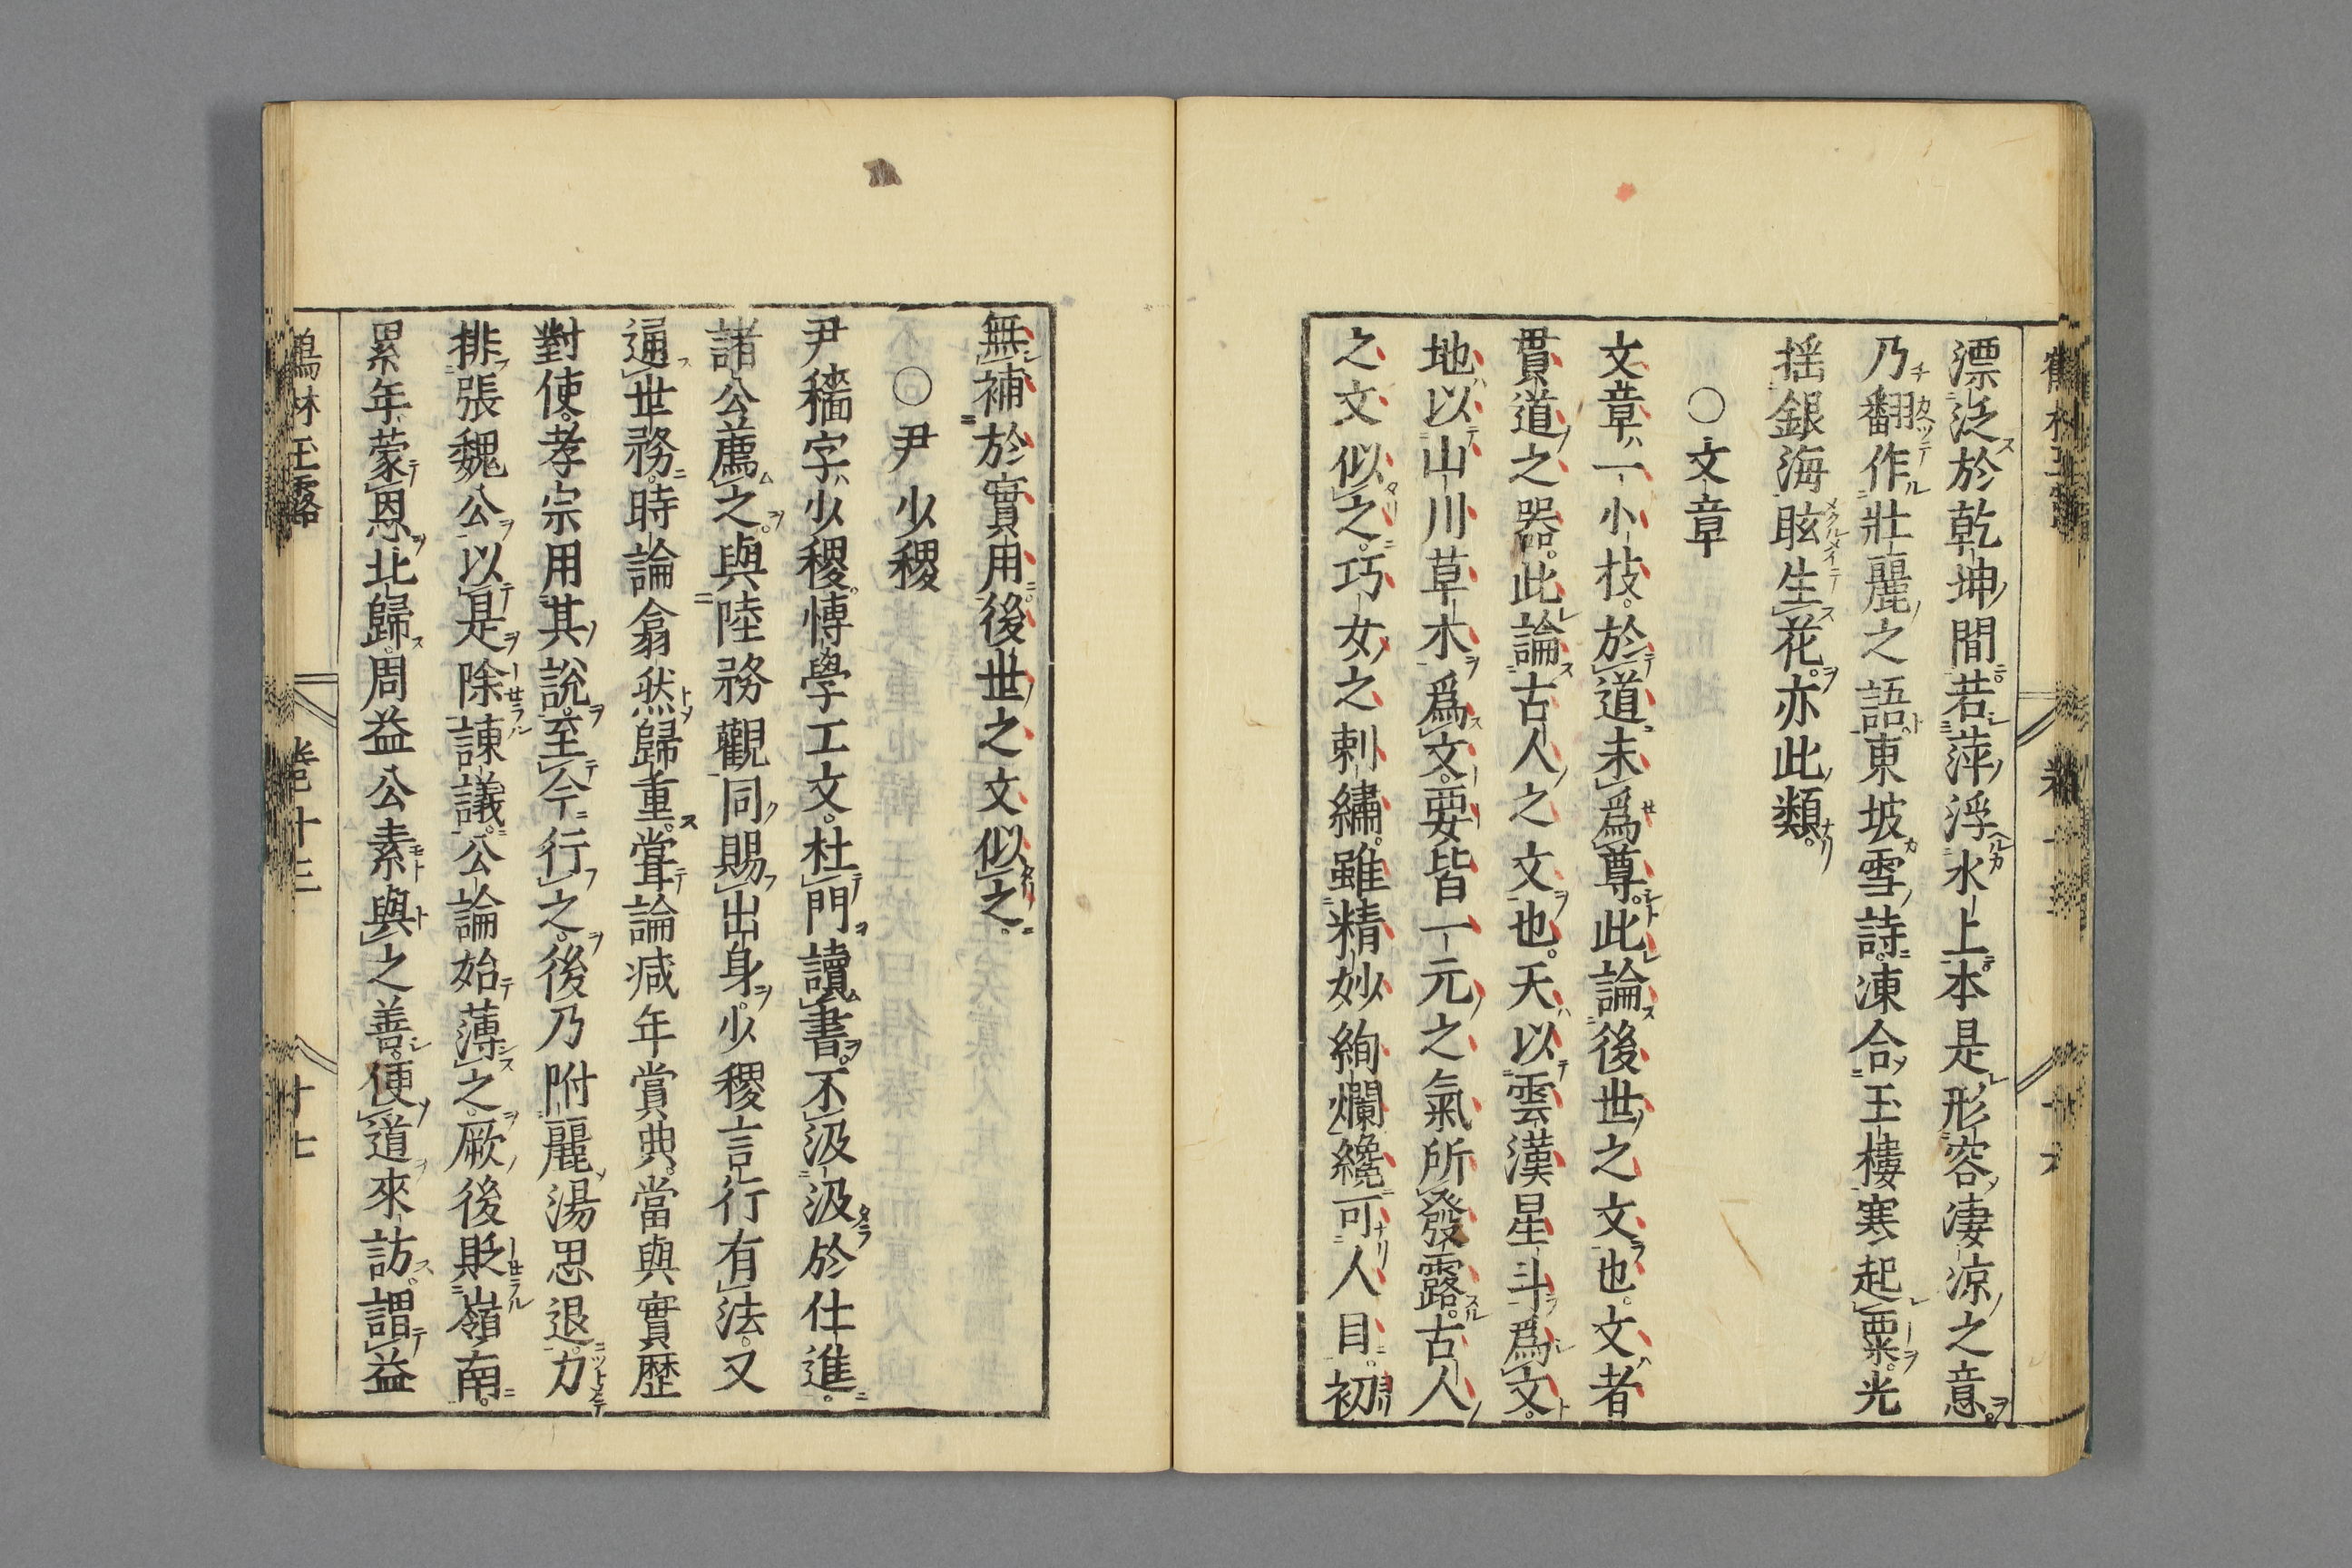 漂泛於乾坤間。若萍浮水上。本是形容凄凉之意。
乃翻作壯麗之語東坡雪詩。凍合玉樓寒起粟。光
揺銀海眩生花。亦此類。
〇文章
文章一小枝。於道未爲尊。此論後世之文也。文者
貫道之器。此論古人之文也。天以雲漢星斗爲文。
地以山川草木爲文。要皆一元之氣所發露。古人
之文似之。巧女之刺繡。雖精妙絢爛纔可人目。初
無補於實用。後世之文似之。
〇尹少稷
尹穡字少稷。愽學工文。杜門讀書。不汲汲於仕進。
諸公薦之。與陸務觀同賜出身。少稷言行有法。又
通世務。時論翕然歸重。甞論减年賞典。當與實歷
對使。孝宗用其說。至今行之。後乃附麗湯思退。力
排張魏公。以是除諫議。公論始薄之。厥後貶嶺南。
累年蒙恩北歸。周益公素與之善。便道來訪。謂益
鶴林玉露 卷十三 十七